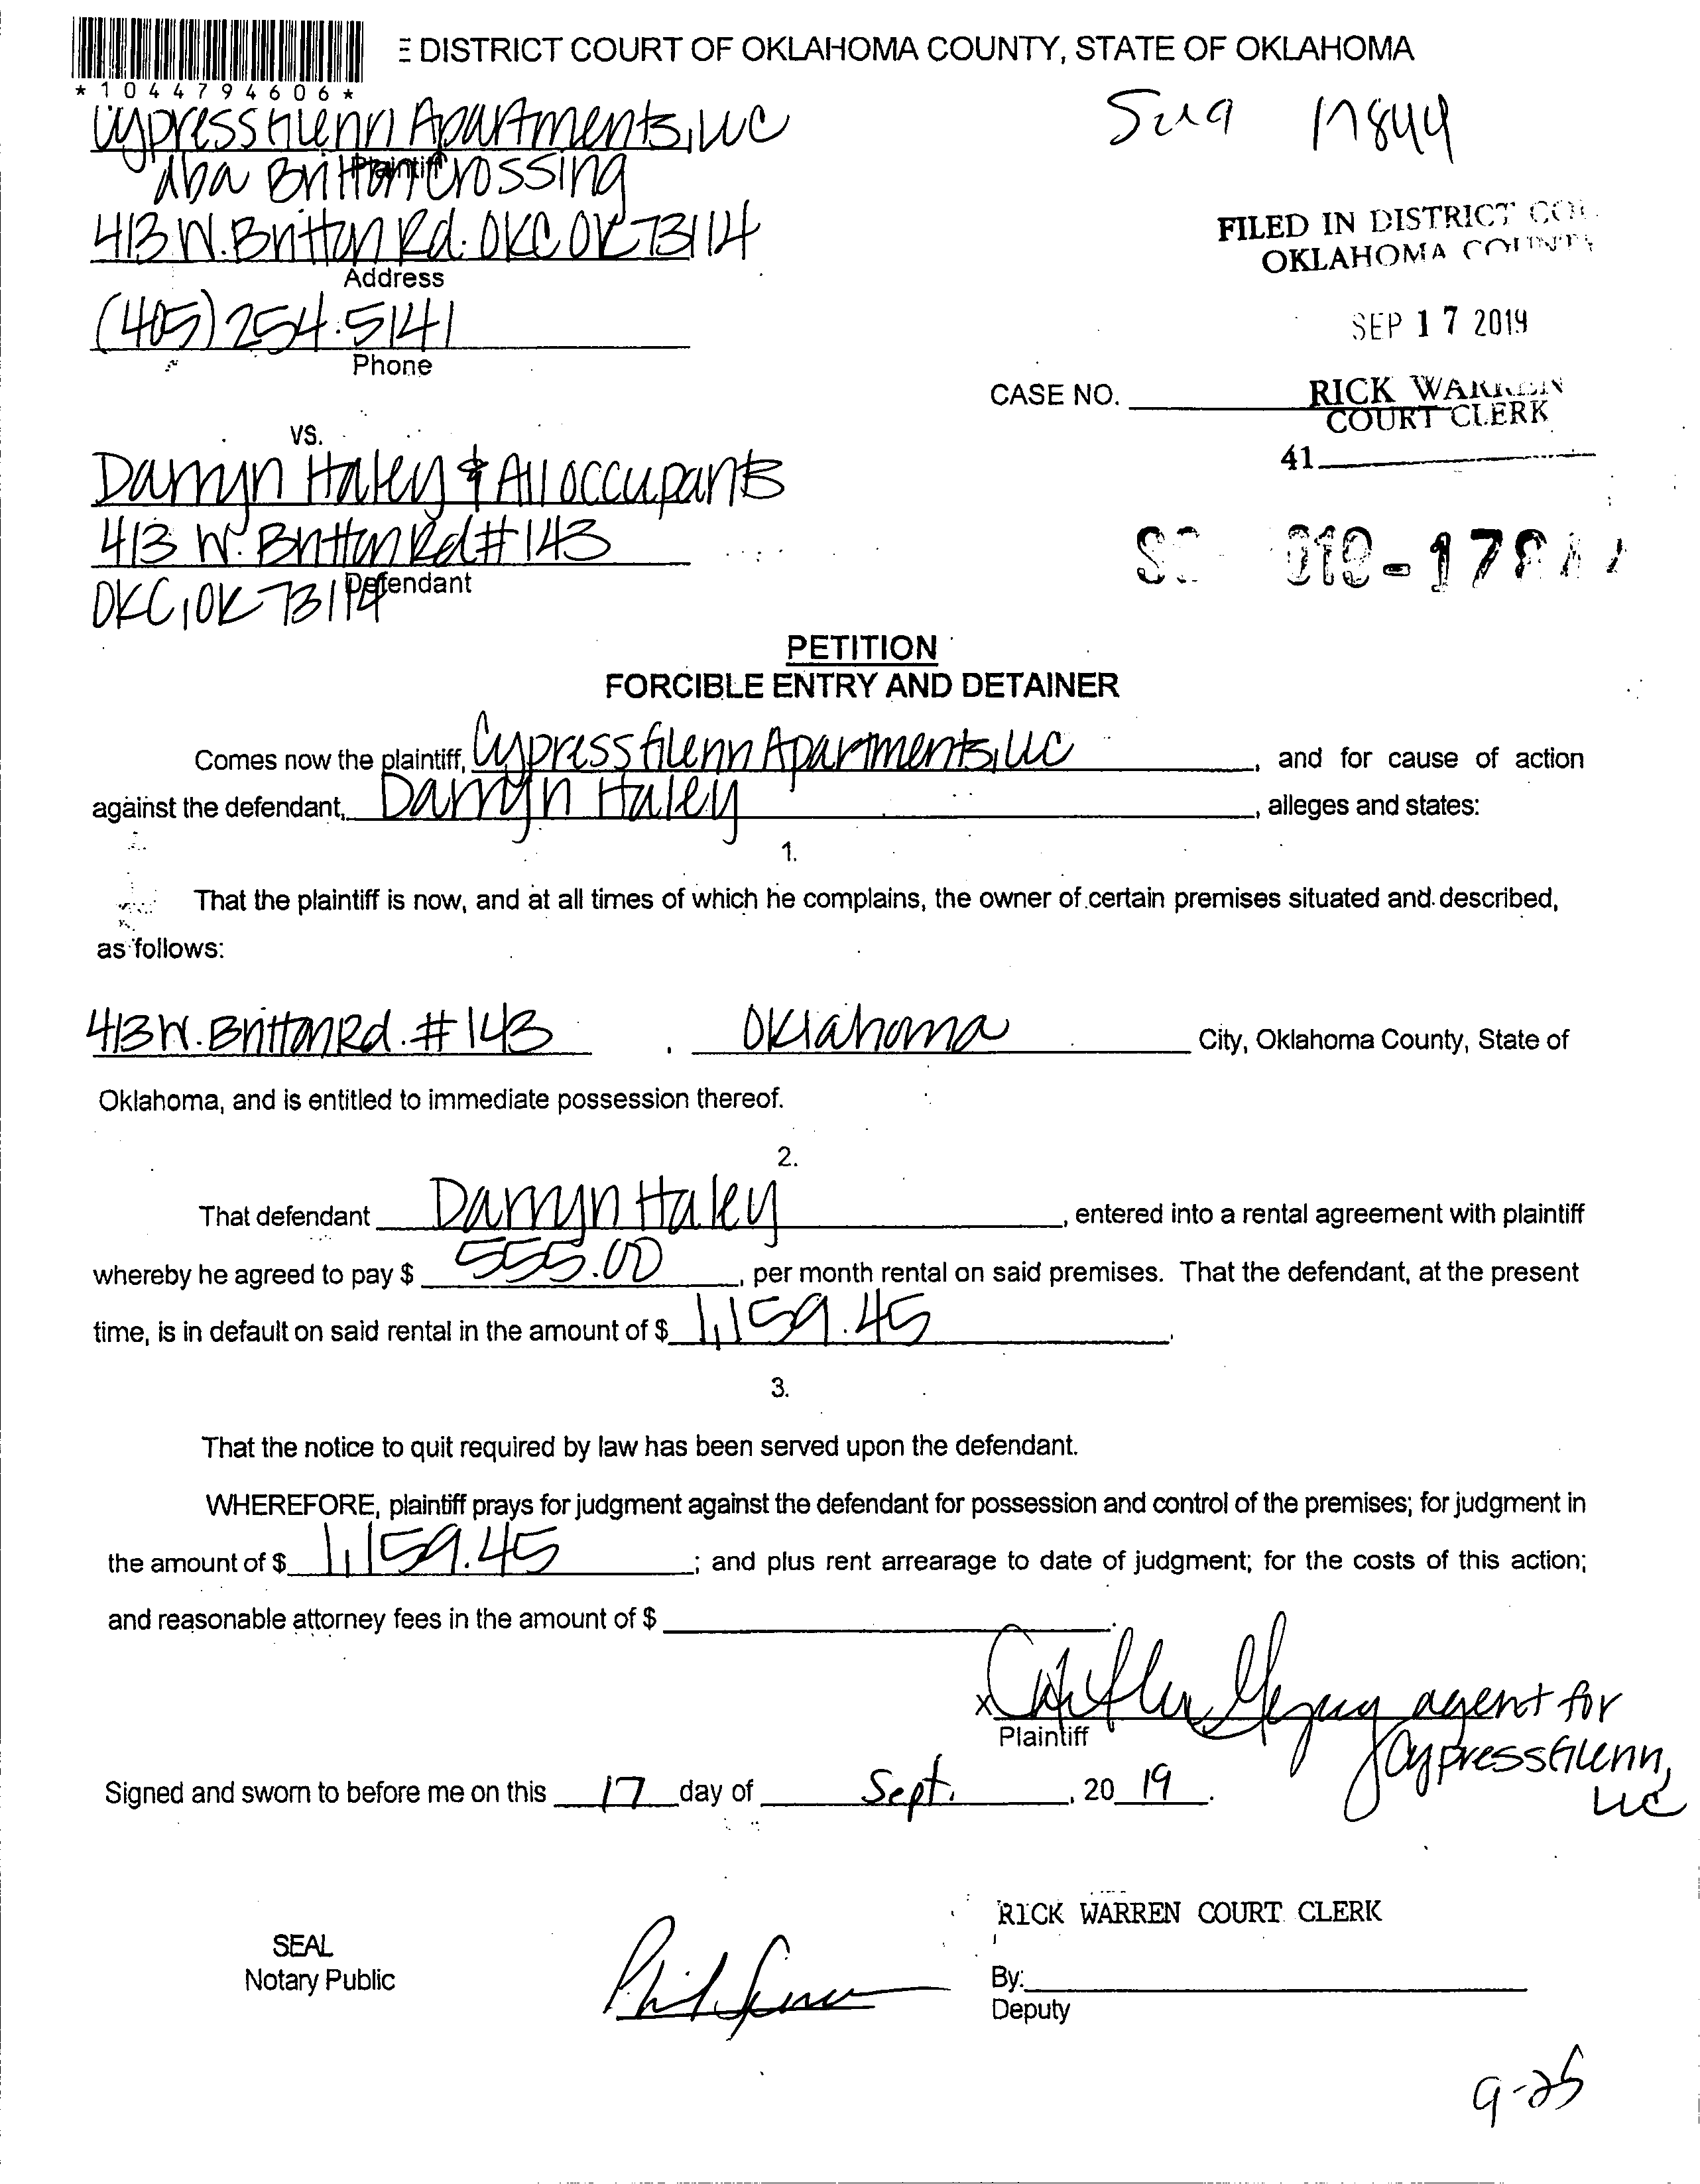 DISTRICT COURT OF OKLAHOMA COUNTY, STATE OF OKLAHOMA
*1044794606*
Cypress Glenn Apartments, LLC
Plaintiff
dba Britton Crossing
17844
413 W. Britton Rd. OKC OK 73114
Address
FILED IN DISTRICT
OKLAHOMA COUNTY
(405) 254.5141
Phone
SEP 17 2019
CASE NO.
RICK WARREN
COURT CLERK
41
vs.
Darryn Haley & All occupants
413 W. Britton Rd #143
Defendant
OKC, OK 73114
PETITION
FORCIBLE ENTRY AND DETAINER
Comes now the plaintiff, Cypress Glenn Apartments, LLC, and for cause of action
against the defendant, Darryn Haley, alleges and states:
1.
That the plaintiff is now, and at all times of which he complains, the owner of certain premises situated and described,
as follows:
413 W. Britton Rd. #143, Oklahoma City, Oklahoma County, State of
Oklahoma, and is entitled to immediate possession thereof.
2.
That defendant Darryn Haley, entered into a rental agreement with plaintiff
whereby he agreed to pay $ 555.00, per month rental on said premises. That the defendant, at the present
time, is in default on said rental in the amount of $ 1,159.45.
3.
That the notice to quit required by law has been served upon the defendant.
WHEREFORE, plaintiff prays for judgment against the defendant for possession and control of the premises; for judgment in
the amount of $ 1,159.45; and plus rent arrearage to date of judgment; for the costs of this action;
and reasonable attorney fees in the amount of $
x agent for
Plaintiff
Cypress Glenn,
LLC
Signed and sworn to before me on this 17 day of Sept., 20 19.
RICK WARREN COURT CLERK
SEAL
Notary Public
By:
Deputy
9-25